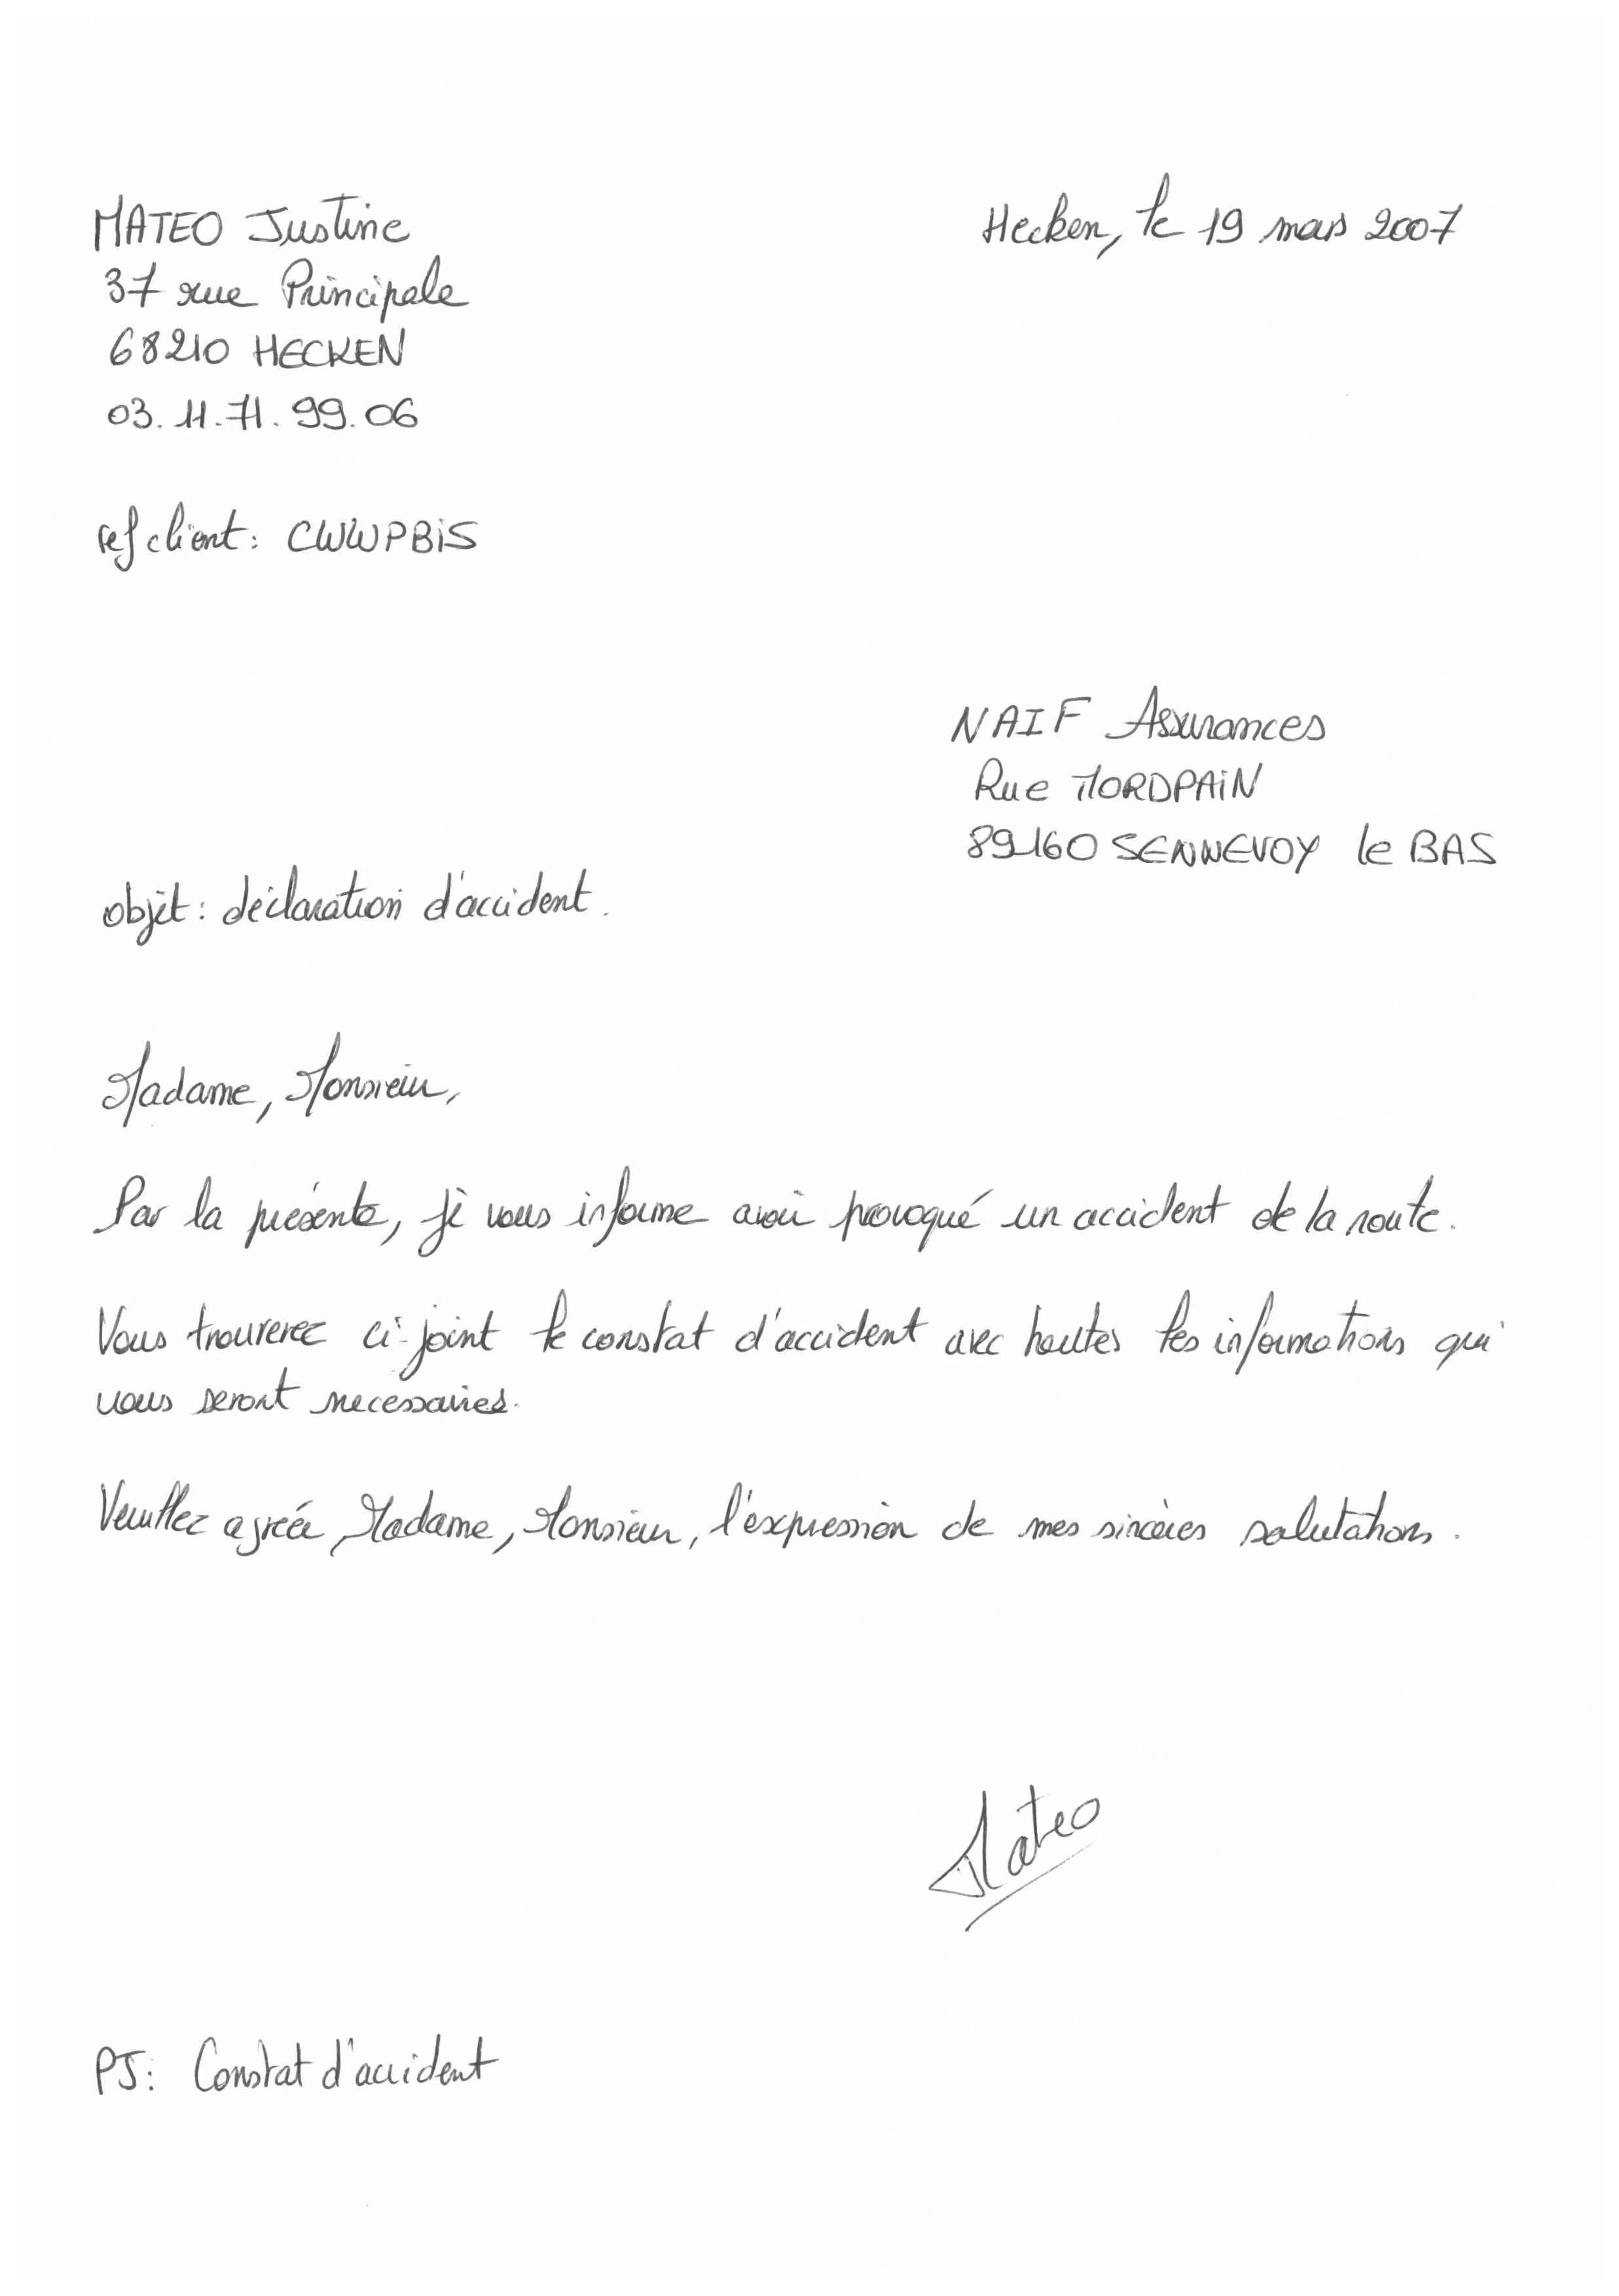 MATEO Justine
Hecken, le 19 mars 2007
37 rue Principale
68210 HECKEN
03.11.71.99.06
ref client : CWWPBIS
NAIF Assurances
Rue MORDPAIN
89160 SENNEVOY le BAS
objet : déclaration d'accident.
Madame, Monsieur,
Par la présente, je vous informe avoir provoqué un accident de la route.
Vous trouverez ci-joint le constat d'accident avec toutes les informations qui
vous seront necessaires.
Veuillez agréer, Madame, Monsieur, l'expression de mes sincères salutations.
Mateo
PJ : Constat d'accident